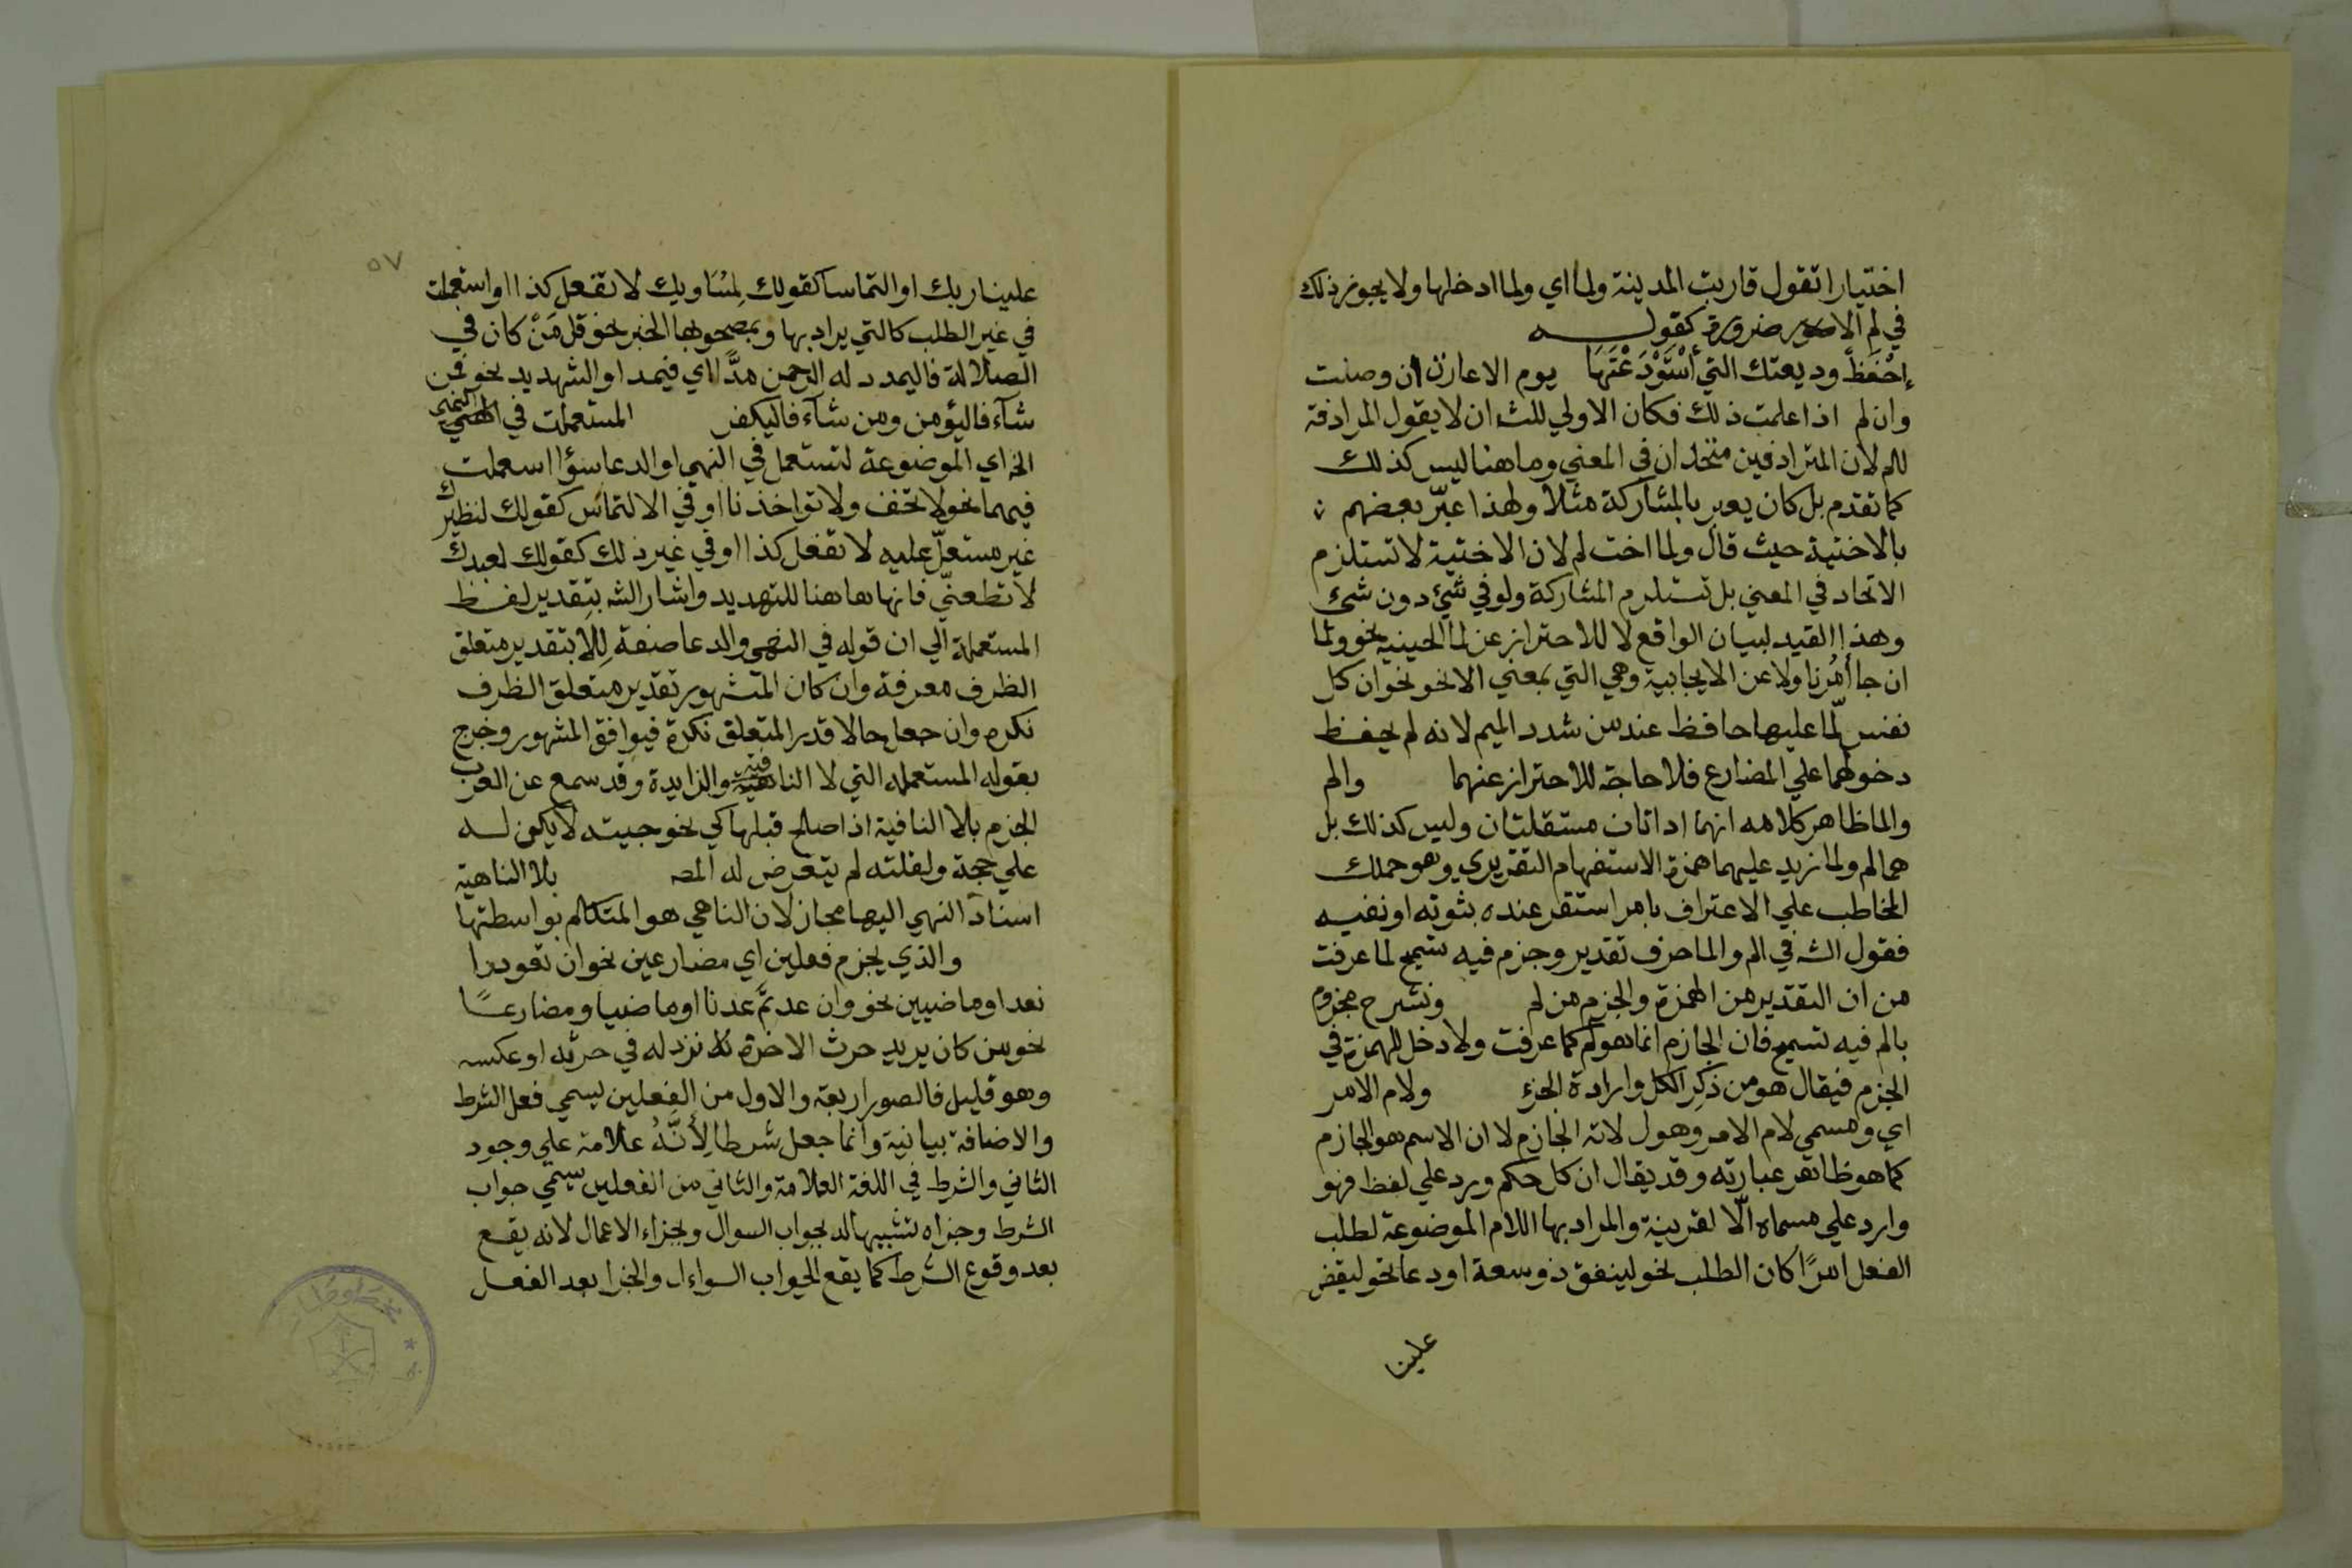 اختيارا تقول قاربت المدينة ولما اي ولما ادخلها ولا يجوز ذلك
في لم الا ضرورة كقوله
إحْفَظْ وديعتك التي أسْتَوْدَعْتَهَا يوم الاعازن ان وصلت
وان لم اذا علمت ذلك فكان الاولي للش ان لا يقول المرادفة
للم لان المترادفين متحدان في المعني وما هنا ليس كذلك
كما تقدم بل كان يعبر بالمشاركة مثلا ولهذا عبّر بعضهم
بالاختية حيث قال ولما اخت لم لان الاختية لا تستلزم
الاتحاد في المعني بل تستلزم المشاركة ولو في شيء دون شيء
وهذا القيد لبيان الواقع لا للاحتراز عن لما الحينية نحو ولما
ان جا أمْرُنا ولا عن الايجابية وهي التي بمعني الا نحو نحو ان كل
نفس لّما عليها حافظ عند من شدد الميم لانه لم يحفظ
دخولهما علي المضارع فلا حاجة للاحتراز عنهما والم
والما ظاهر كلامه انهما اداتان مستقلتان وليس كذلك بل
هما لم ولما زيد عليهما همزة الاستفهام التقريري وهو حملك
المخاطب علي الاعتراف بامر استقر عنده بثوته او نفيه
فقول الش في الم والما حرف تقدير وجزم فيه تسمح لما عرفت
من ان التقدير من الهمزة والجزم من لم ونشرح مجزوم
بالم فيه تسمح فان الجازم انما هو لم كما عرفت ولا دخل للهمزة في
الجزم فيقال هو من ذكر الكل وارادة الجزء ولام الامر
اي ومسمي لام الامر وهو ل لانه الجازم لا ان الاسم هو الجازم
كما هو ظاهر عبارته وقد يقال ان كل حكم ورد علي لفظ فهو
وارد علي مسماه الّا لقرينة والمراد بها اللام الموضوعة لطلب
الفعل امرًا كان الطلب نحو لينفق ذو سعة او دعا نحو ليقض
علينا
٥٧
علينا ربك او التماسا كقولك لِمُسَاويك لا تفعل كذا او استعملت
في غير الطلب كالتي يراد بها وبمصحوبها الخبر نحو قل مَنْ كان في
الضلالة فاليمدد له الرحمن مدًّا اي فيمد او التهديد نحو فمن
شآء فاليؤمن ومن شآء فاليكفر المستعملت في النهي
الخ اي الموضوعة لتستعمل في النهي او الدعا سؤا اسعملت
فيهما نحو لا تخف ولا تواخذنا او في الالتماس كقولك لنظيرك
غير مستعلّ عليه لا تفعل كذا او في غير ذلك كقولك لعبدك
لا تطعنّي فانها هاهنا للتهديد واشار الش بتقدير لفظ
المستعملة الي ان قوله في النهي والدعا صفة لِلا بتقدير متعلق
الظرف معرفة وان كان المتشهور تقدير متعلق الظرف
نكره وان جعل حالا قدر المتعلق نكرة فيوافق المشهور وخرج
بقوله المستعمله التي لا النافية والزايدة وقد سمع عن العرب
الجزم بلا النافية اذا صلح قبلها كي نحو جيته لا يكن له
علي حجة ولقلته لم يتعرض له المص بلا الناهية
اسناد النهي اليها مجاز لان الناهي هو المتكلم بواسطتها
والذي يجزم فعلين اي مضارعين نحو ان تعودوا
نعد او ماضيين نحو وان عدتم عدنا او ماضيا ومضارعًا
نحو من كان يريد حرث الاخرة نزد له في حرثه او عكسه
وهو قليل فالصور اربعة والاول من الفعلين يسمي فعل الشرط
والاضافة بيانية وانما جعل شرطا لِأَنَّهُ علامة علي وجود
الثاني والشرط في اللغة العلامة والثاني من الفعلين يسمي جواب
الشرط وجزاه تشبيها له بجواب السوال وبجزاء الاعمال لانه يقع
بعد وقوع الشرط كما يقع الجواب السواءل والجزا بعد الفعل